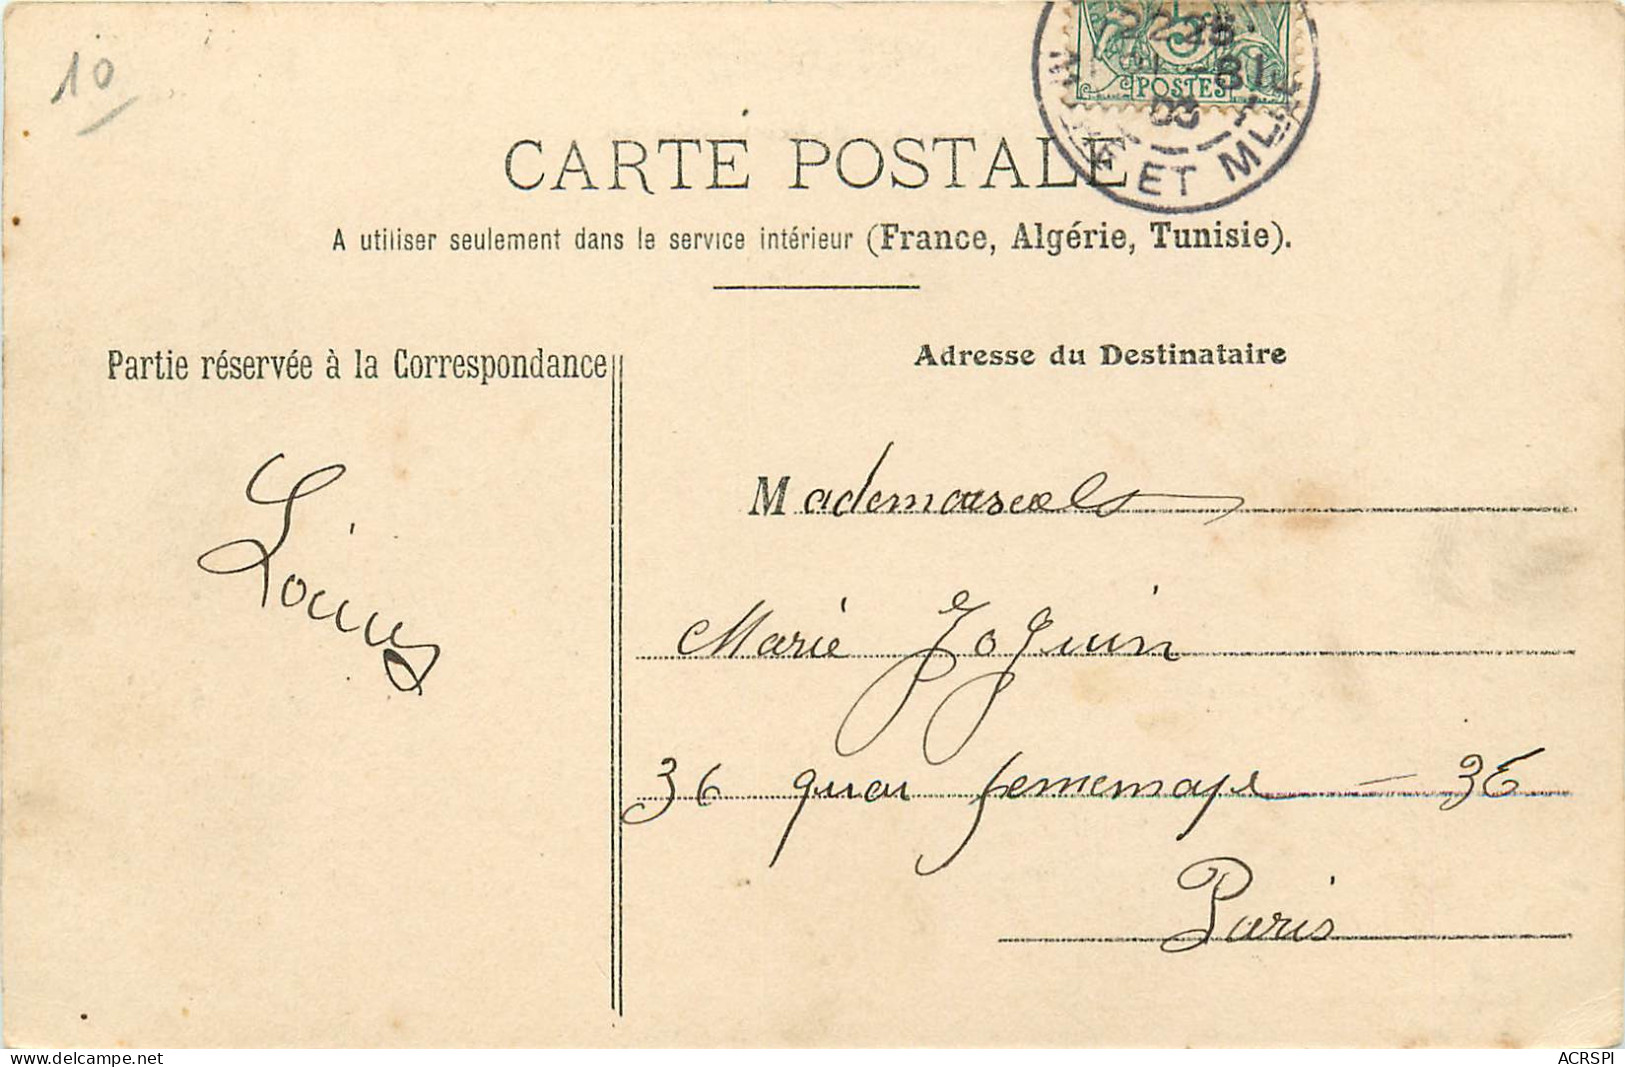 10
5
POSTES
ET
CARTE POSTALE
A utiliser seulement dans le service intérieur (France, Algérie, Tunisie).
Partie réservée à la Correspondance
Adresse du Destinataire
Mademoiselle
Marie
36 quai Jemmapes - 36
Paris
delcampe.net
ACRSPI